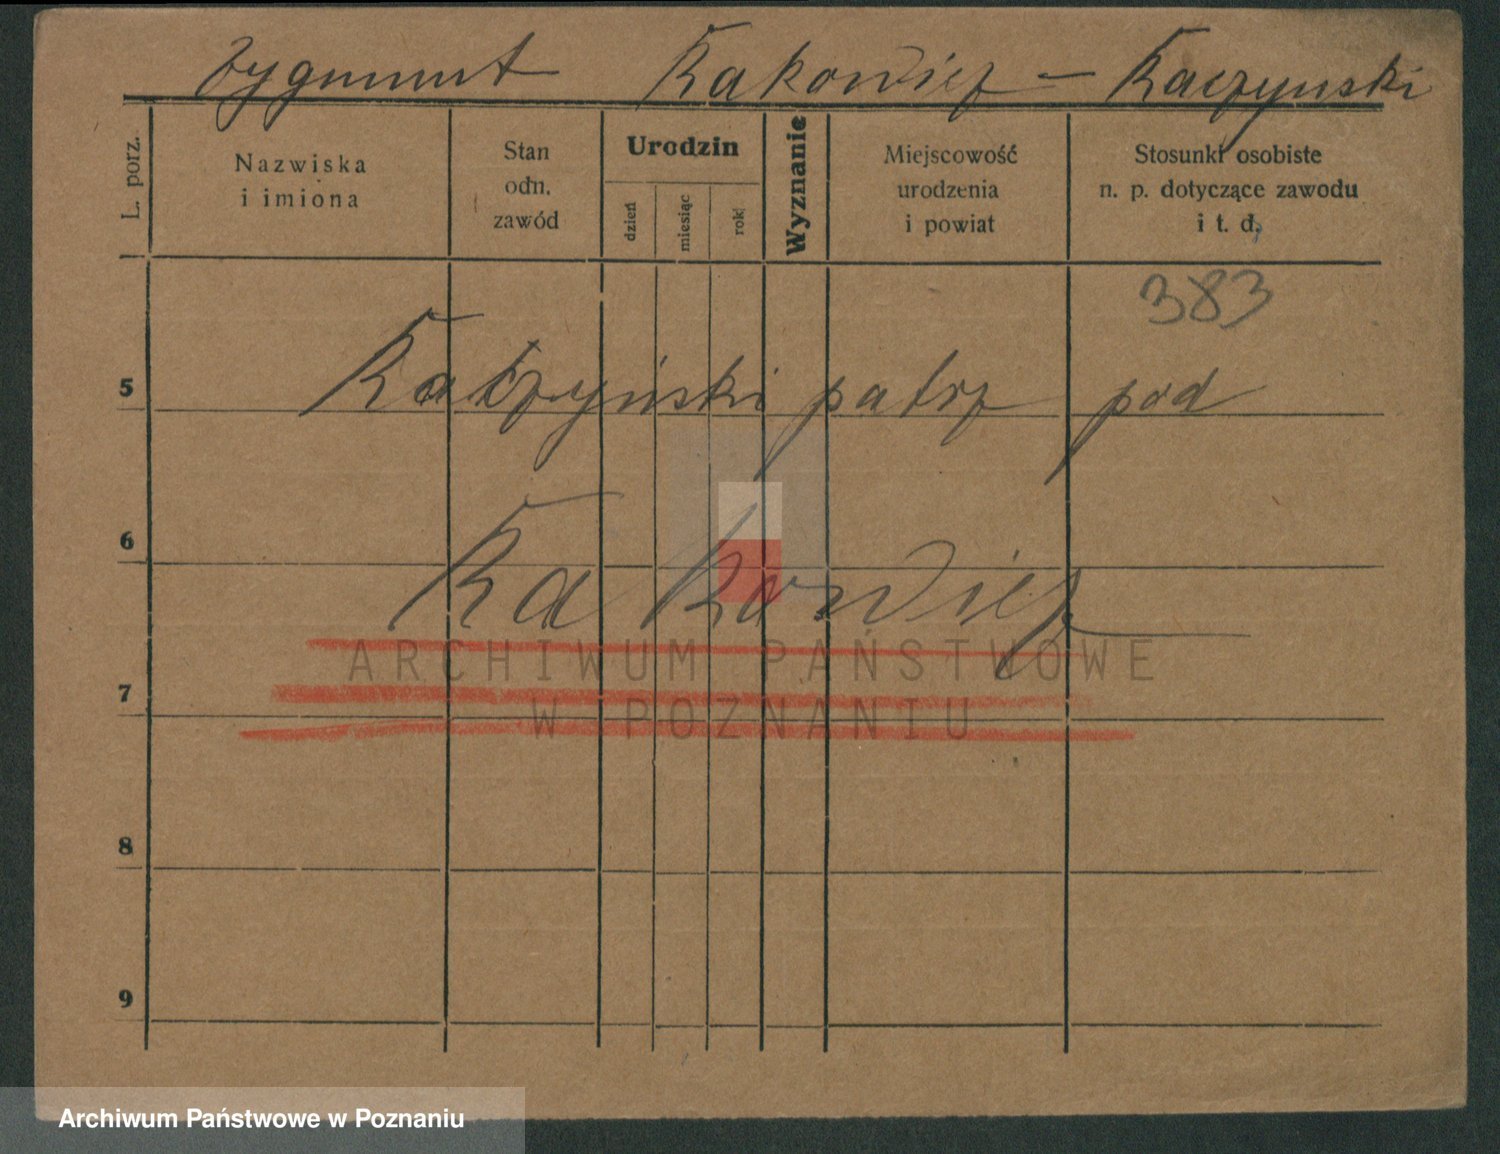 Zygmunt Kakowicz - Kaczynski
L. porz.
Nazwiska
i imiona
Stan
odn.
zawód
Urodzin
dzień
miesiąc
rok
Wyznanie
Miejscowość
urodzenia
i powiat
Stosunki osobiste
n. p. dotyczące zawodu
i t. d.
383
5
Kaczyński patrz pod
6
Kakowicz
ARCHIWUM PAŃSTWOWE
W POZNANIU
7
8
9
Archiwum Państwowe w Poznaniu